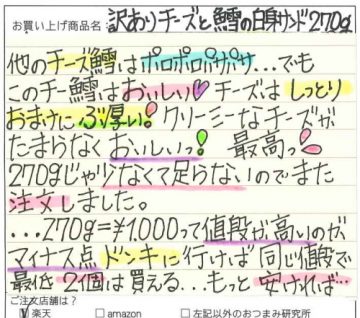 お買い上げ商品名:訳ありチーズと鱈の白身サンド270g
他のチーズ鱈はポロポロパサパサ…でも
このチー鱈はおいしい♡チーズはしっとり
おまけにぶ厚い!クリーミーなチーズが
たまらなくおいしいっ!最高っ!
270gじゃ少なくて足らないのでまた
注文しました。
…270g=¥1,000って値段が高いのが
マイナス点 ドンキに行けば同じ値段で
最低2個は買える…もっと安ければ…
ご注文店舗は?
☑楽天 □amazon □左記以外のおつまみ研究所